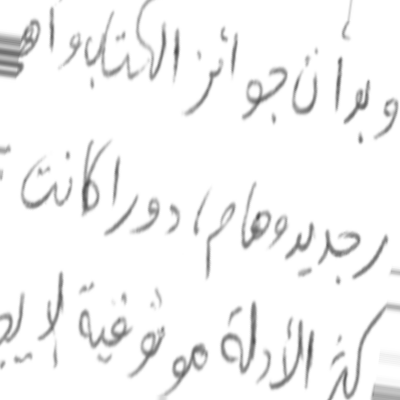 وبدأن جوائز الكتاب واه
ر جديد وهام، دورا كانت
كثر الأدلة موثوقية لا